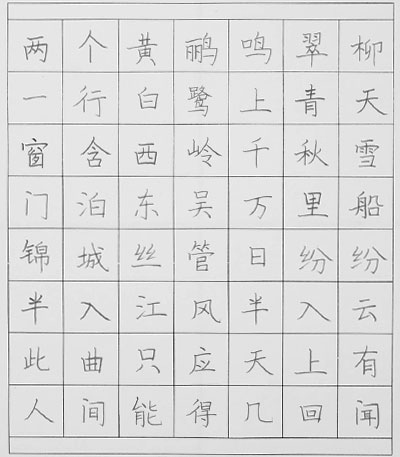 两个黄鹂鸣翠柳
一行白鹭上青天
窗含西岭千秋雪
门泊东吴万里船
锦城丝管日纷纷
半入江风半入云
此曲只应天上有
人间能得几回闻